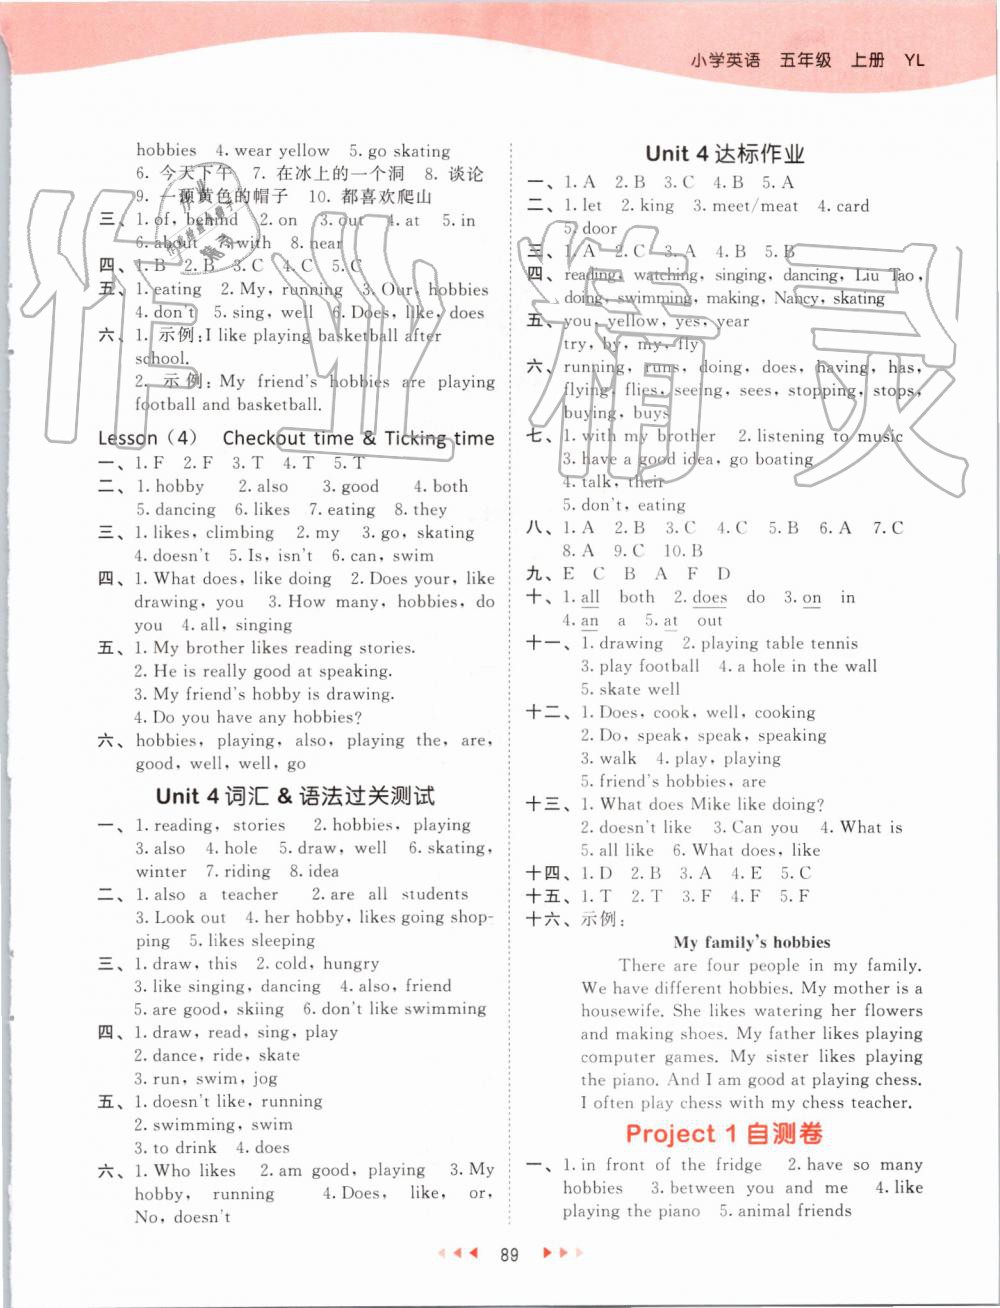 小学英语 五年级 上册 YL
hobbies 4. wear yellow 5. go skating
6. 今天下午 7. 在冰上的一个洞 8. 谈论
9. 一顶黄色的帽子 10. 都喜欢爬山
三、1. of, behind 2. on 3. out 4. at 5. in
6. about 7. with 8. near
四、1. B 2. B 3. C 4. C 5. C
五、1. eating 2. My, running 3. Our, hobbies
4. don't 5. sing, well 6. Does, like, does
六、1. 示例:I like playing basketball after
school.
2. 示例:My friend's hobbies are playing
football and basketball.
Lesson (4) Checkout time & Ticking time
一、1. F 2. F 3. T 4. T 5. T
二、1. hobby 2. also 3. good 4. both
5. dancing 6. likes 7. eating 8. they
三、1. likes, climbing 2. my 3. go, skating
4. doesn't 5. Is, isn't 6. can, swim
四、1. What does, like doing 2. Does your, like
drawing, you 3. How many, hobbies, do
you 4. all, singing
五、1. My brother likes reading stories.
2. He is really good at speaking.
3. My friend's hobby is drawing.
4. Do you have any hobbies?
六、hobbies, playing, also, playing the, are,
good, well, well, go
Unit 4 词汇 & 语法过关测试
一、1. reading, stories 2. hobbies, playing
3. also 4. hole 5. draw, well 6. skating,
winter 7. riding 8. idea
二、1. also a teacher 2. are all students
3. Look out 4. her hobby, likes going shop-
ping 5. likes sleeping
三、1. draw, this 2. cold, hungry
3. like singing, dancing 4. also, friend
5. are good, skiing 6. don't like swimming
四、1. draw, read, sing, play
2. dance, ride, skate
3. run, swim, jog
五、1. doesn't like, running
2. swimming, swim
3. to drink 4. does
六、1. Who likes 2. am good, playing 3. My
hobby, running 4. Does, like, or,
No, doesn't
Unit 4 达标作业
一、1. A 2. B 3. C 4. B 5. A
二、1. let 2. king 3. meet/meat 4. card
5. door
三、1. A 2. C 3. A 4. B 5. B
四、reading, watching, singing, dancing, Liu Tao,
doing, swimming, making, Nancy, skating
五、you, yellow, yes, year
try, by, my, fly
六、running, runs, doing, does, having, has,
flying, flies, seeing, sees, stopping, stops,
buying, buys
七、1. with my brother 2. listening to music
3. have a good idea, go boating
4. talk, their
5. don't, eating
八、1. A 2. B 3. C 4. C 5. B 6. A 7. C
8. A 9. C 10. B
九、E C B A F D
十、1. all both 2. does do 3. on in
4. an a 5. at out
十一、1. drawing 2. playing table tennis
3. play football 4. a hole in the wall
5. skate well
十二、1. Does, cook, well, cooking
2. Do, speak, speak, speaking
3. walk 4. play, playing
5. friend's hobbies, are
十三、1. What does Mike like doing?
2. doesn't like 3. Can you 4. What is
5. all like 6. What does, like
十四、1. D 2. B 3. A 4. E 5. C
十五、1. T 2. T 3. F 4. F 5. F
十六、示例:
My family's hobbies
There are four people in my family.
We have different hobbies. My mother is a
housewife. She likes watering her flowers
and making shoes. My father likes playing
computer games. My sister likes playing
the piano. And I am good at playing chess.
I often play chess with my chess teacher.
Project 1 自测卷
一、1. in front of the fridge 2. have so many
hobbies 3. between you and me 4. like
playing the piano 5. animal friends
89
作业精灵